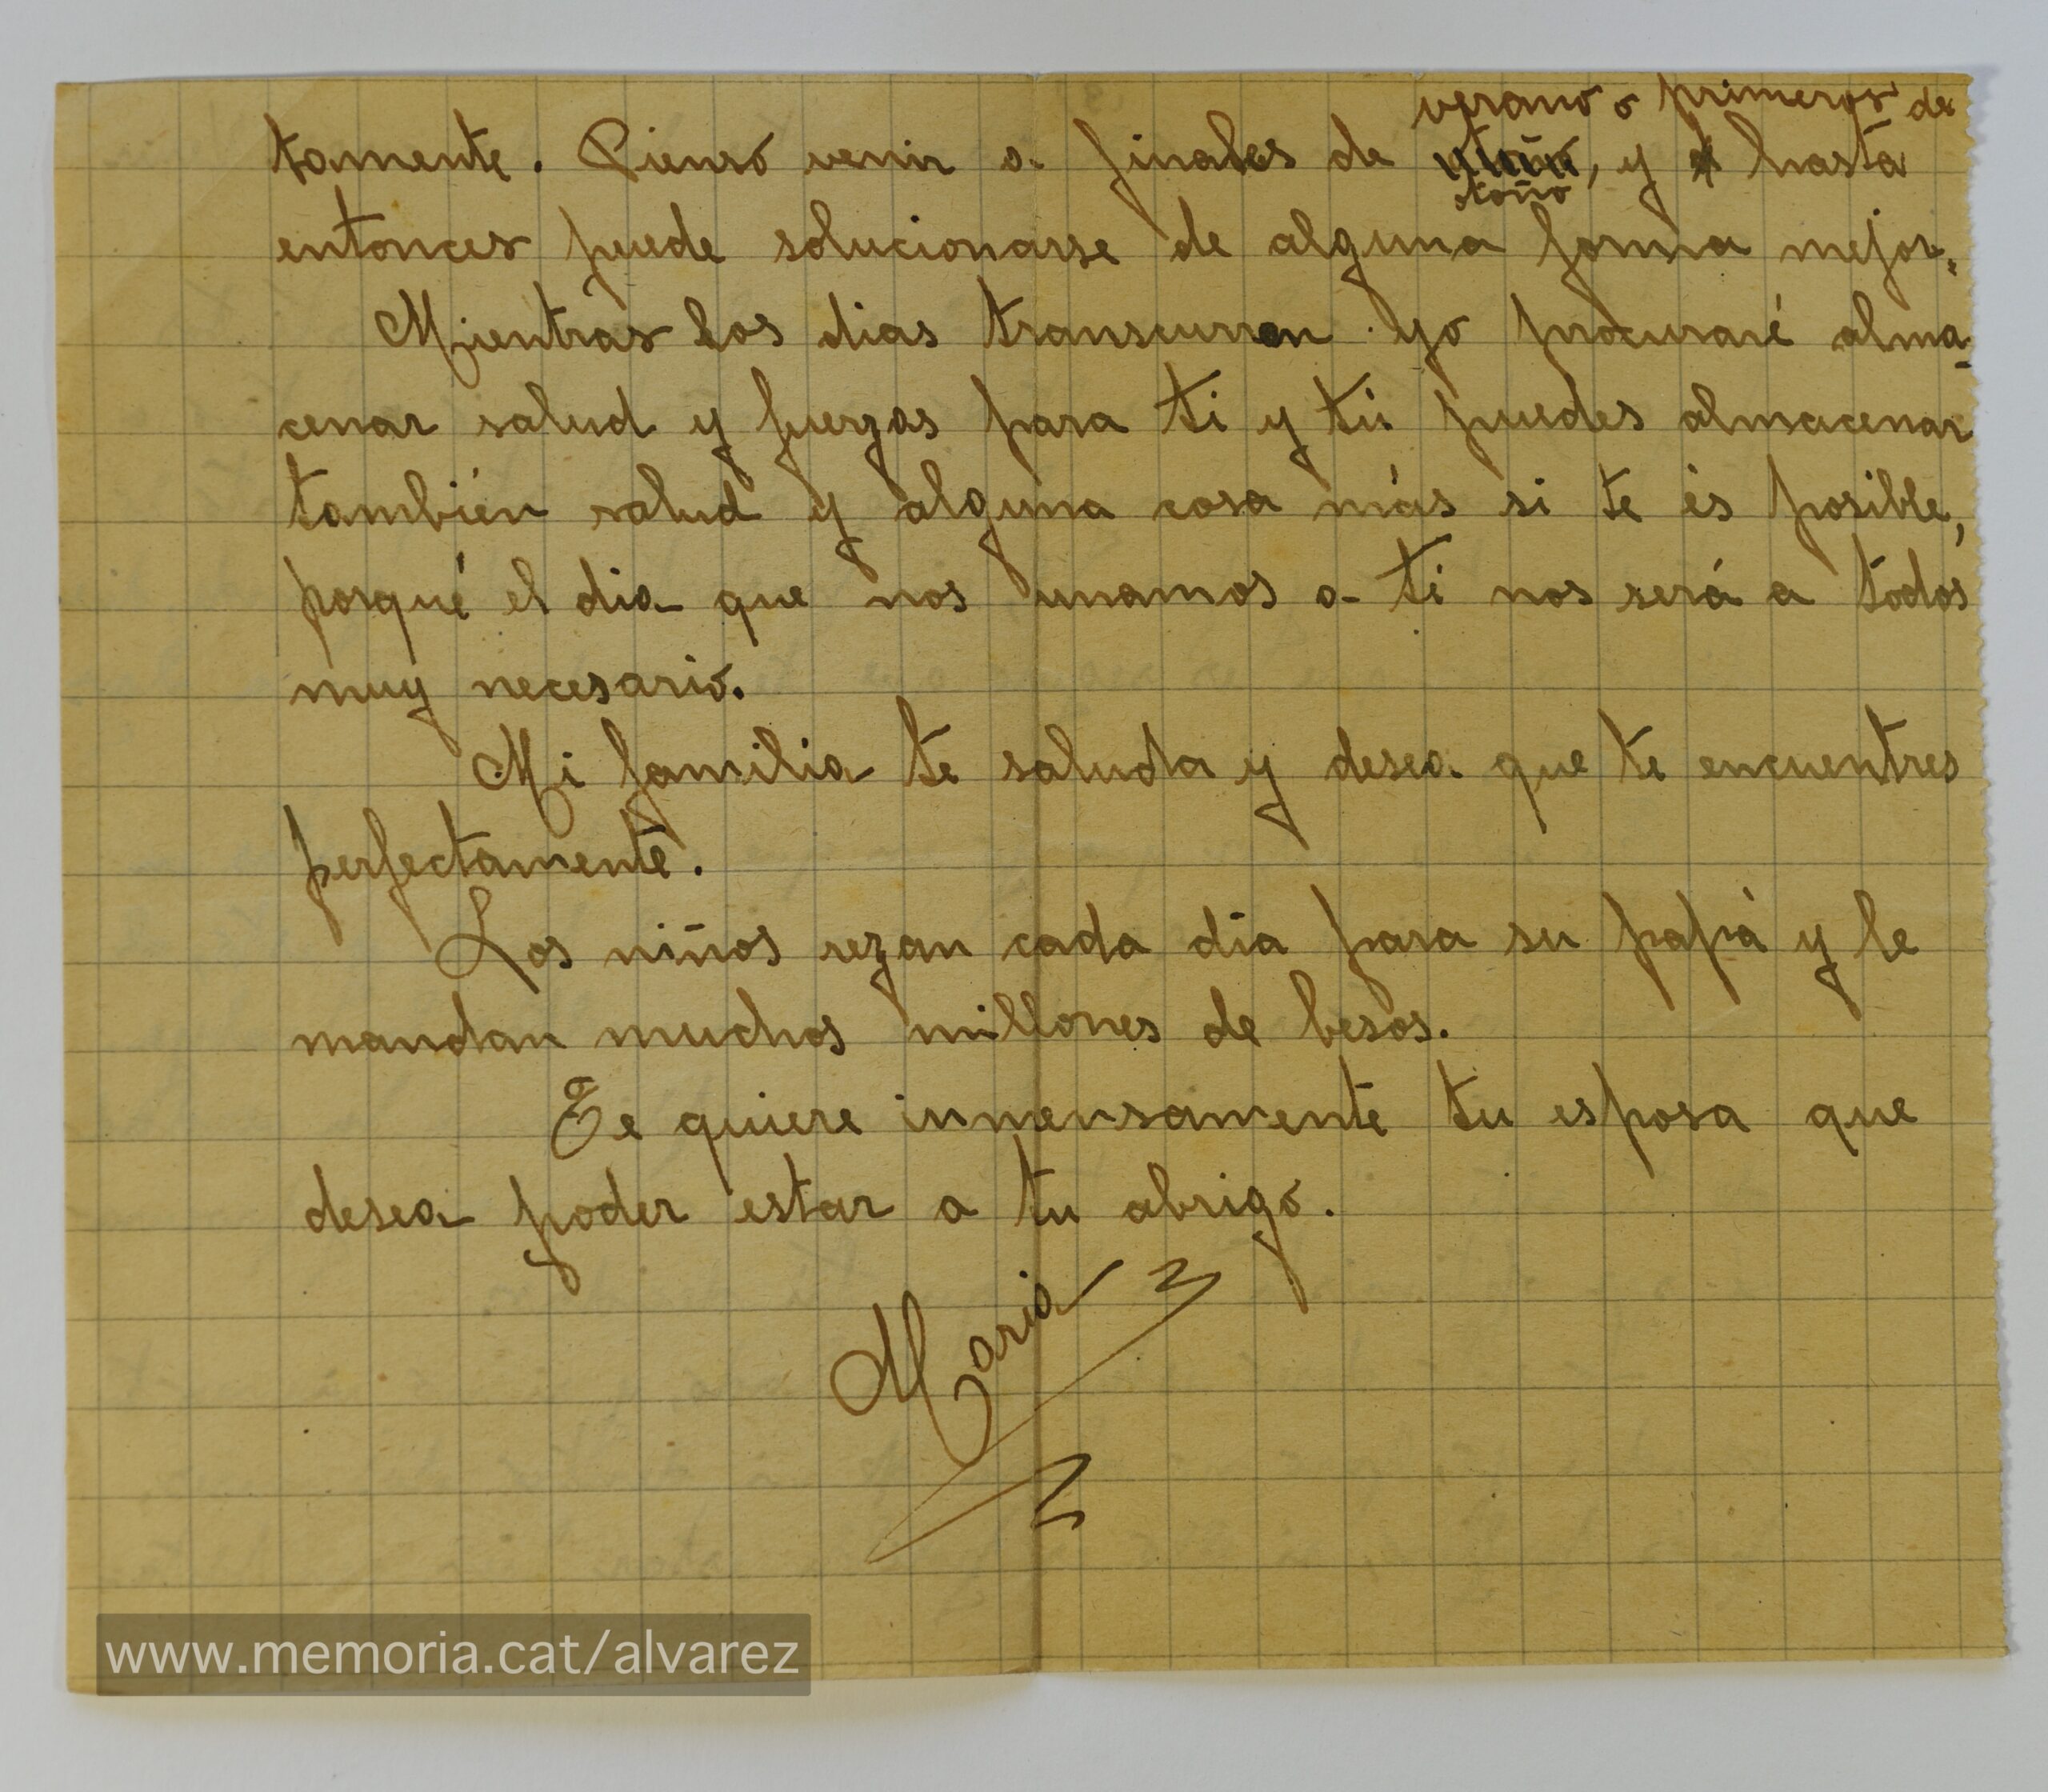 verano o primeros de
tamente. Pienso venir a finales de otoño, y hasta
toño
entonces puede solucionarse de alguna forma mejor.
Mientras los dias transcurren yo procuraré alma-
cenar salud y fuerzas para ti y tú puedes almacenar
también salud y alguna cosa más si te és posible,
porqué el dia que nos unamos a ti nos será a todos
muy necesario.
Mi familia te saluda y desea que te encuentres
perfectamente.
Los niños rezan cada día para su papá y le
mandan muchos millones de besos.
Te quiere inmensamente tu esposa que
desea poder estar a tu abrigo.
Maria
www.memoria.cat/alvarez